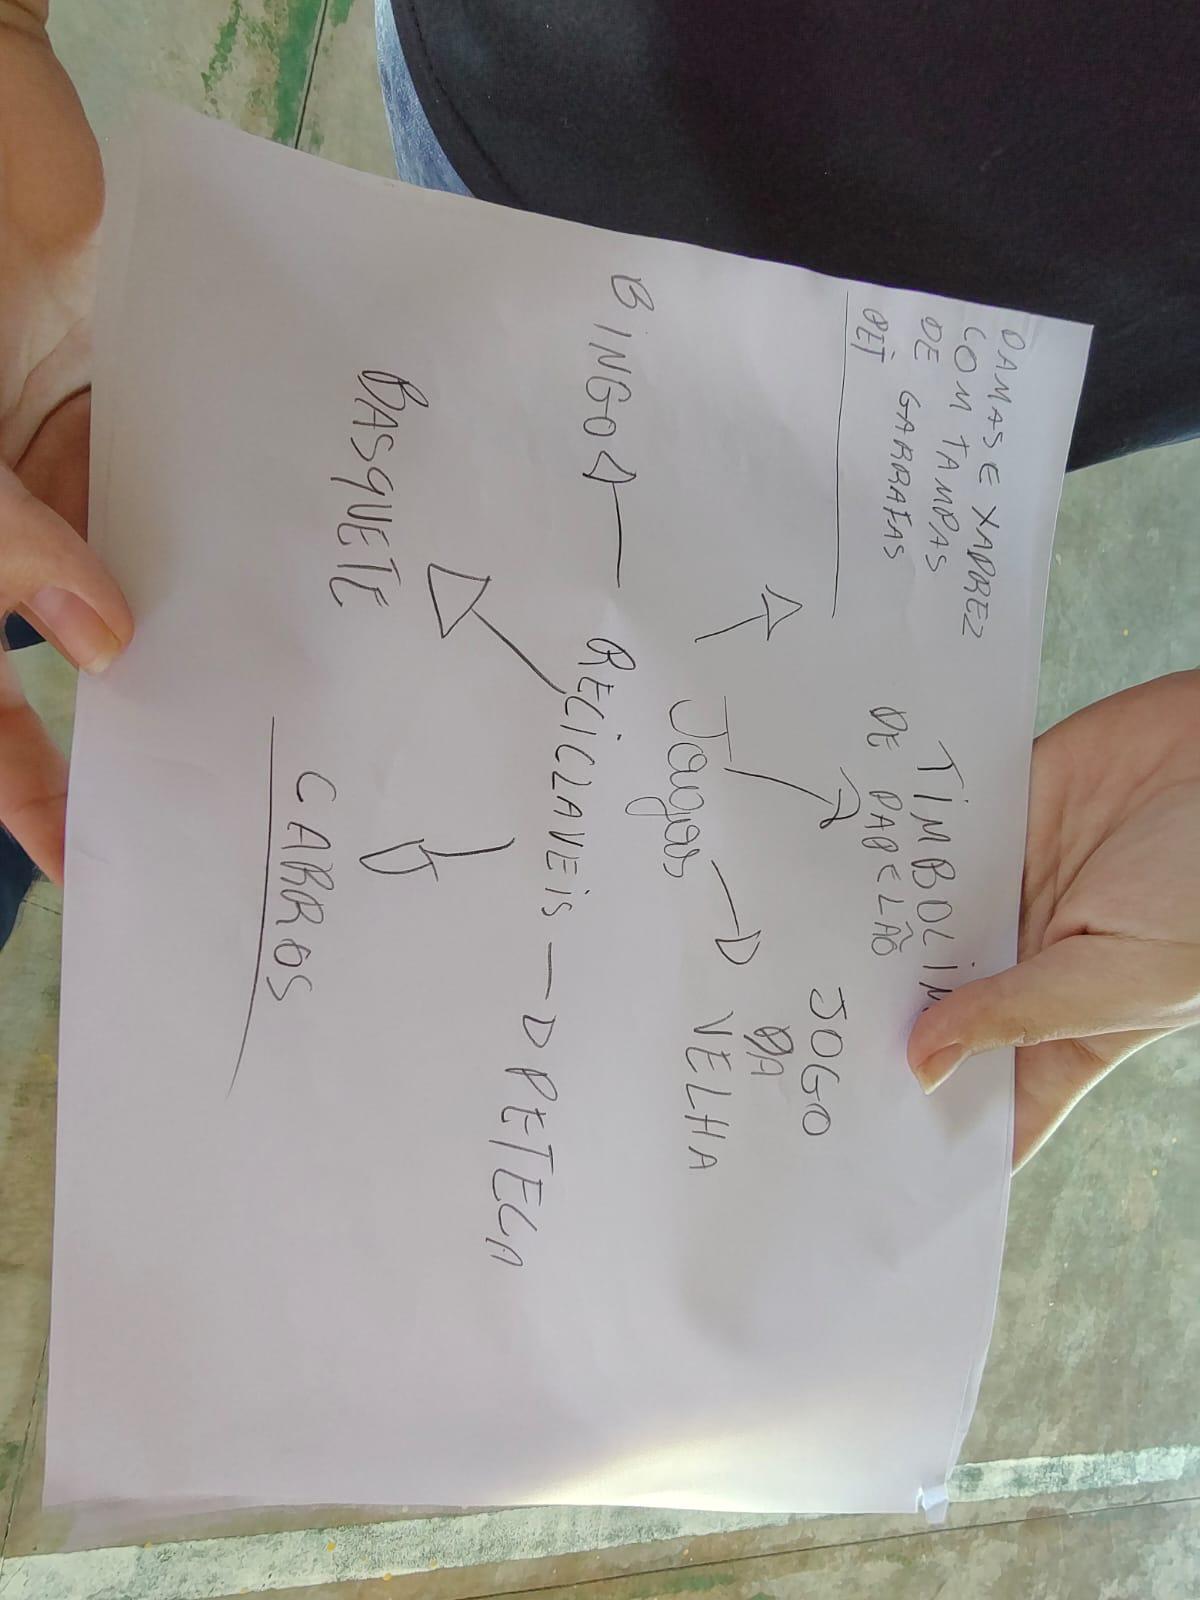 DAMAS E XADREZ
COM TAMPAS
DE GARRAFAS
PET
TIMBOLIM
DE PAPELÃO
JOGO
DA
VELHA
Jogos
RECICLAVEIS
BINGO
PETECA
BASQUETE
CARROS